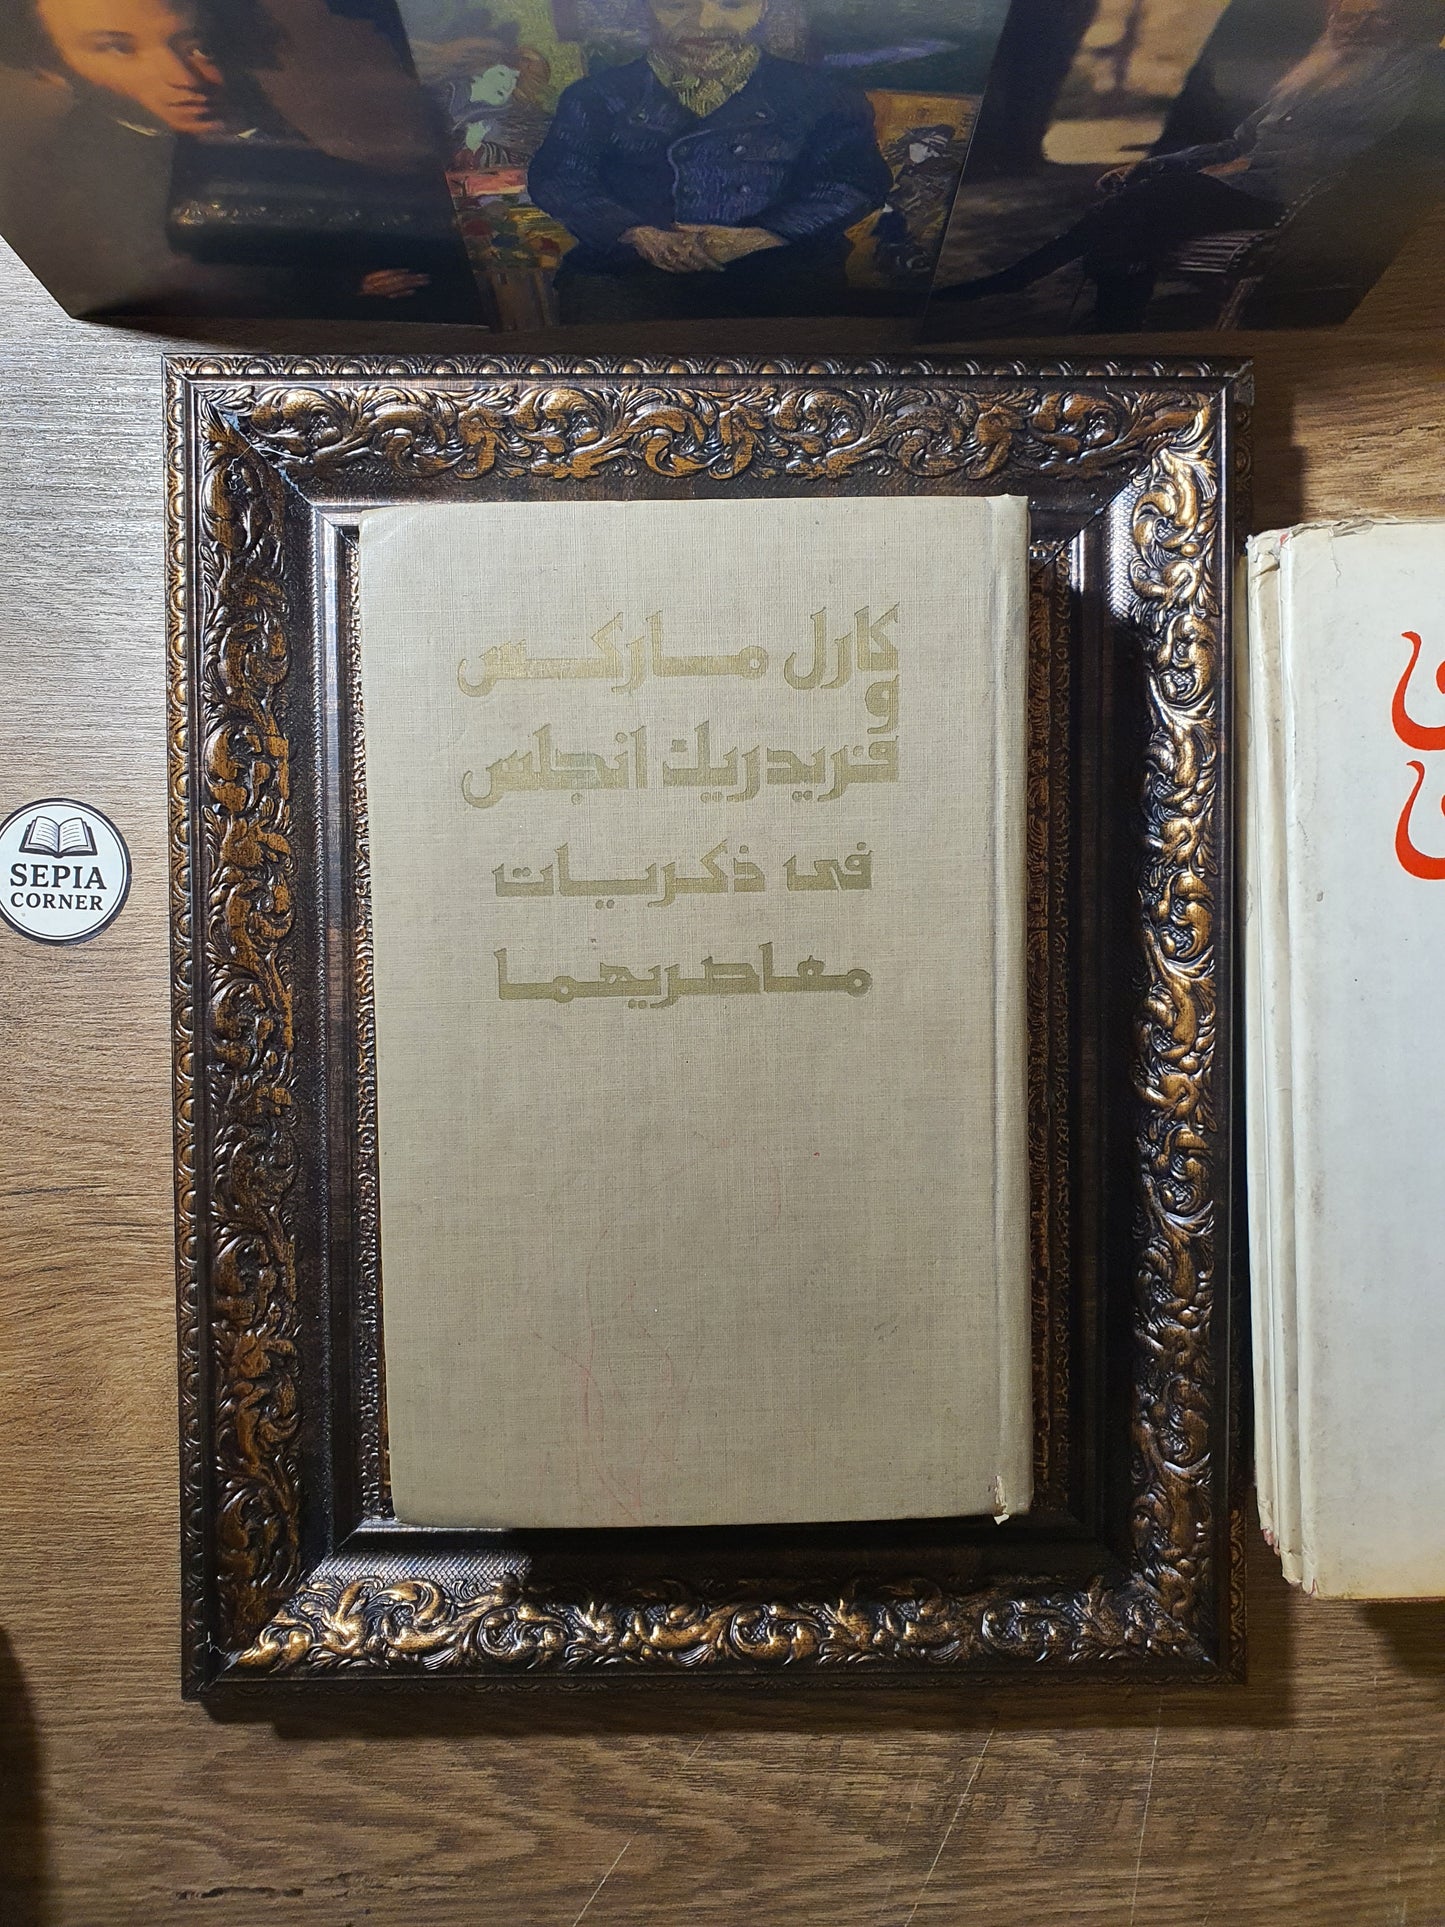 كارل ماركس
و
فريدريك انجلس
فى ذكريات
معاصريهما
SEPIA
CORNER